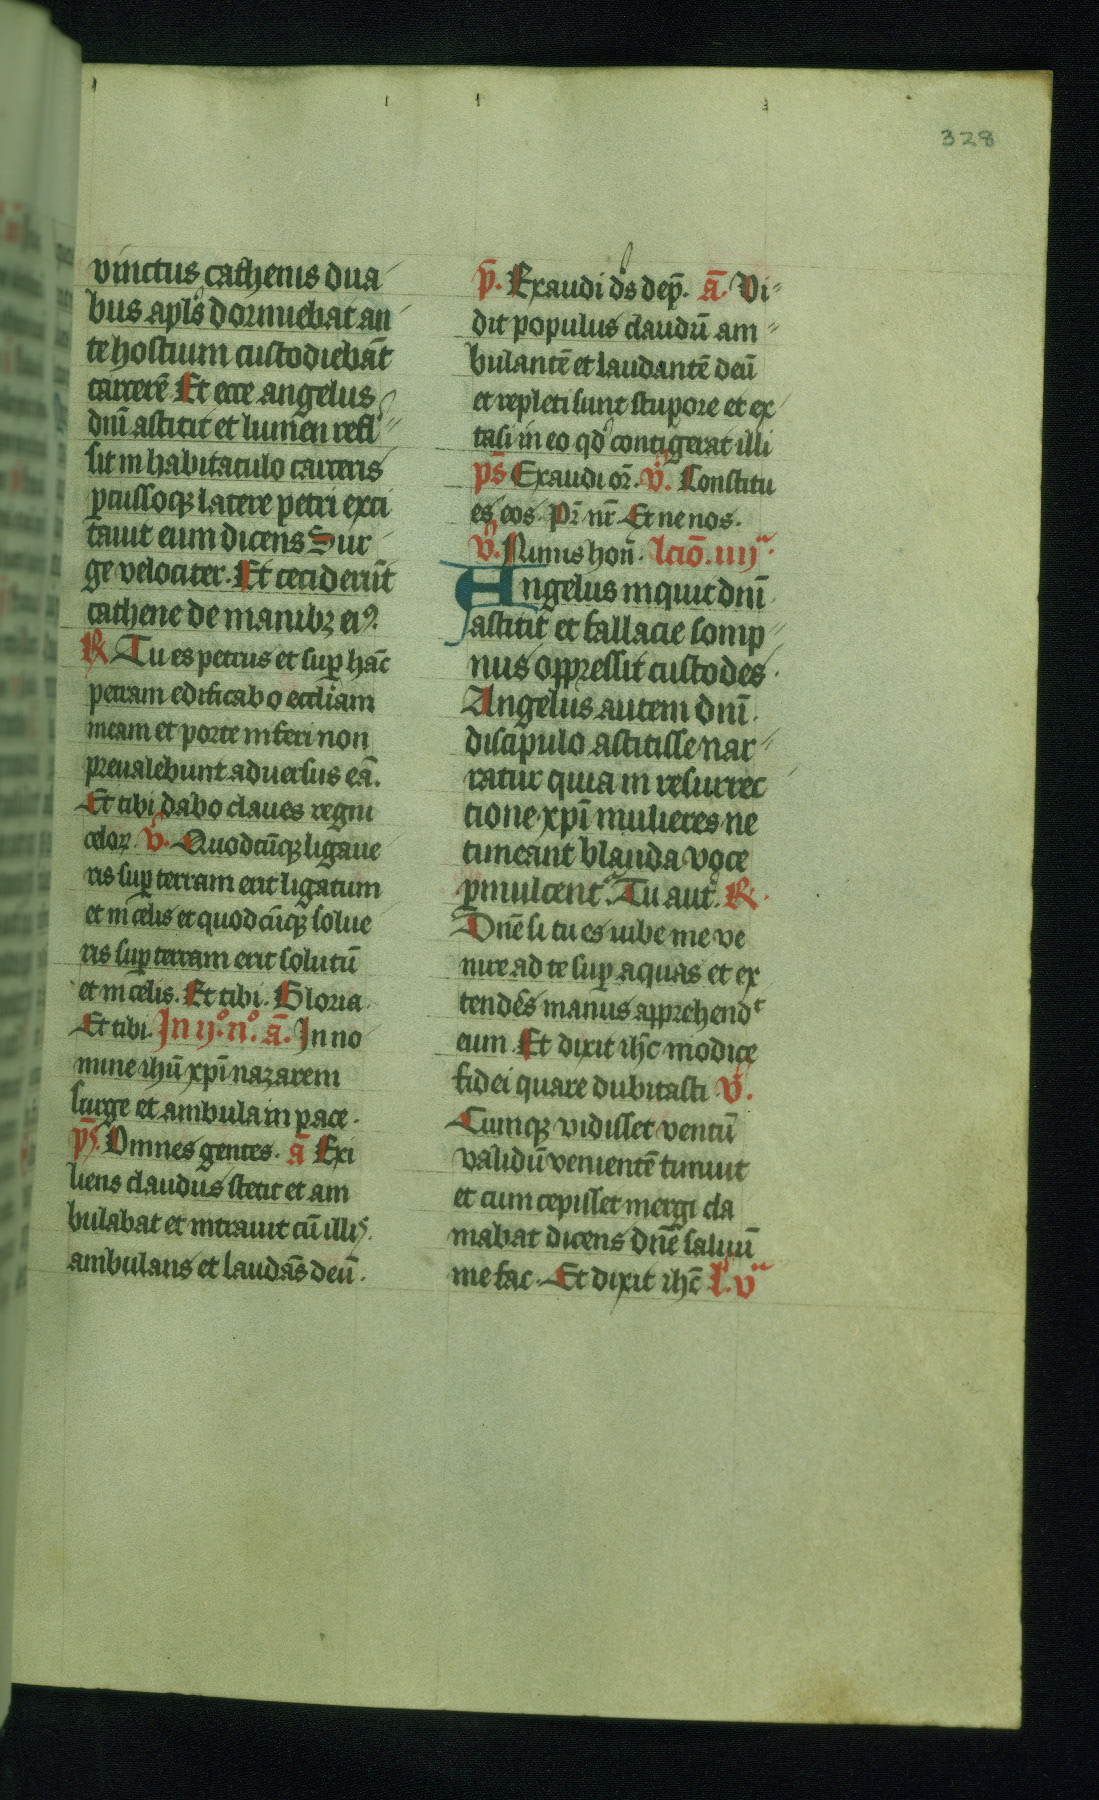 328
vinctus cathenis dua
bus apl̅s dormiebat an
te hostium custodieba̅t
carcere̅ Et ecce angelus
dn̅i astitit et lumen reful
sit in habitaculo carceris
p̲cussoqꝫ latere petri exci
tauit eum dicens Sur
ge velociter. Et cecideru̅t
cathene de manibꝫ eiꝰ.
R̸ Tu es petrus et suꝑ ha̅c
petram edificabo eccl̅iam
meam et porte inferi non
preualebunt aduersus ea̅.
Et tibi dabo claues regni
celoꝝ. v̅. Quodcu̅qꝫ ligaue
ris suꝑ terram erit ligatum
et in celis et quodcu̅qꝫ solue
ris suꝑ terram erit solutu̅
et in celis. Et tibi. Gloria
Et tibi. In ijº. nº. a̅. In no
mine ihu̅ xp̅i nazareni
surge et ambula in pace.
ps̅. Omnes gentes. a̅ Exi
liens claudus stetit et am
bulabat et intrauit cu̅ illis.
ambulans et lauda̅s deu̅.
p̅. Exaudi ds̅ dep̅. a̅. Vi
dit populus claudu̅ am
bulante̅ et laudante̅ deu̅
et repleti sunt stupore et ex
tasi in eo qd̅ contigerat illi
ps̅ Exaudi or̅. v̅. Constitu
es eos. Pr̅ nr̅. Et ne nos.
v̅. Nimis hon̅. lcio̅. iiijª.
Angelus inquit dn̅i
astitit et fallacie somp
nus oppressit custodes.
Angelus autem dn̅i.
discipulo astitisse nar
ratur quia in resurrec
tione xp̅i mulieres ne
timeant blanda voce
ꝑmulcent. Tu aut̅. R̸.
Dn̅e si tu es iube me ve
nire ad te suꝑ aquas et ex
tende̅s manus apprehendᵗ
eum Et dixit ihc̅ modice
fidei quare dubitasti v̅.
Cumqꝫ vidisset ventu̅
validu̅ veniente̅ timuit
et cum cepisset mergi cla
mabat dicens dn̅e saluu̅
me fac. Et dixit ihc̅ l. vª